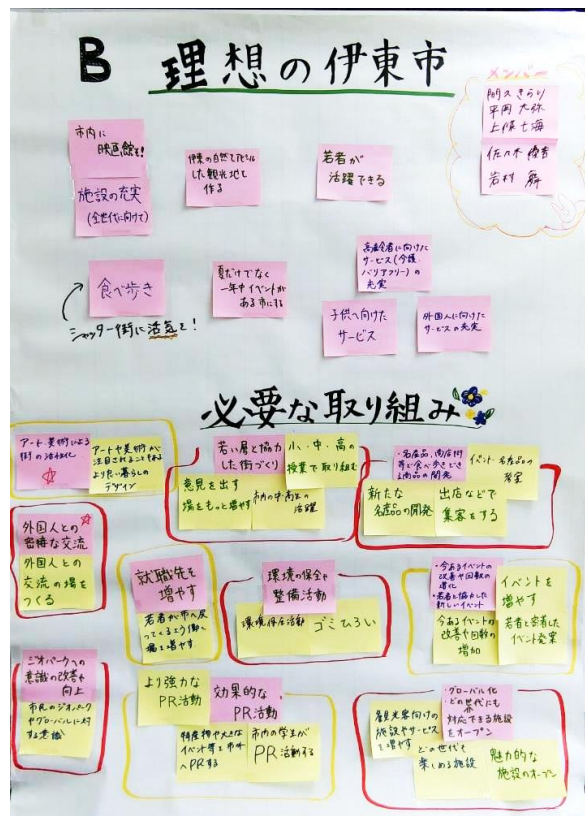 B 理想の伊東市
メンバー
平岡 大弥
上條 七海
佐々木
岩村
市内に
映画館を!
施設の充実
(全世代に向けて)
伊東の自然をアピール
した観光地を
作る
若者が
活躍できる
食べ歩き
シャッター街に活気を!
夏だけでなく
一年中イベントが
ある市にする
高齢者に向けた
サービス(介護・
バリアフリー)の
充実
子供へ向けた
サービス
外国人に向けた
サービスの充実
必要な取り組み
アート・美術による
街の活性化
アートや美術が
注目されることを
よりよい暮らしの
デザイン
若い層と協力
した街づくり
小、中、高の
授業で取り組む
意見を出す
場をもっと増やす
市内の中・高生の
活躍
・名産品、商店街
等で食べ歩きできる
商品の開発
イベント・名産品の
充実
新たな
名産品の開発
出店などで
集客をする
外国人との
密接な交流
外国人との
交流の場を
つくる
就職先を
増やす
若者が市へ戻
ってくるよう働く
場を増やす
環境の保全や
整備活動
環境保全活動
ゴミひろい
・今あるイベントの
改善や回数の
増化
・若者と協力した
新しいイベント
イベントを
増やす
今あるイベントの
改善や回数の
増加
若者と密着した
イベント発案
ジオパークへの
意識の改善や
向上
市民のジオパーク
やグローバルに対
する意識
より強力な
PR活動
効果的な
PR活動
特産物や大きな
イベント等を市外
へPRする
市内の学生が
PR活動する
・グローバル化
・どの世代にも
対応できる施設
をオープン
観光客向けの
施設やサービス
を増やす
どの世代も
楽しめる施設
魅力的な
施設のオープン